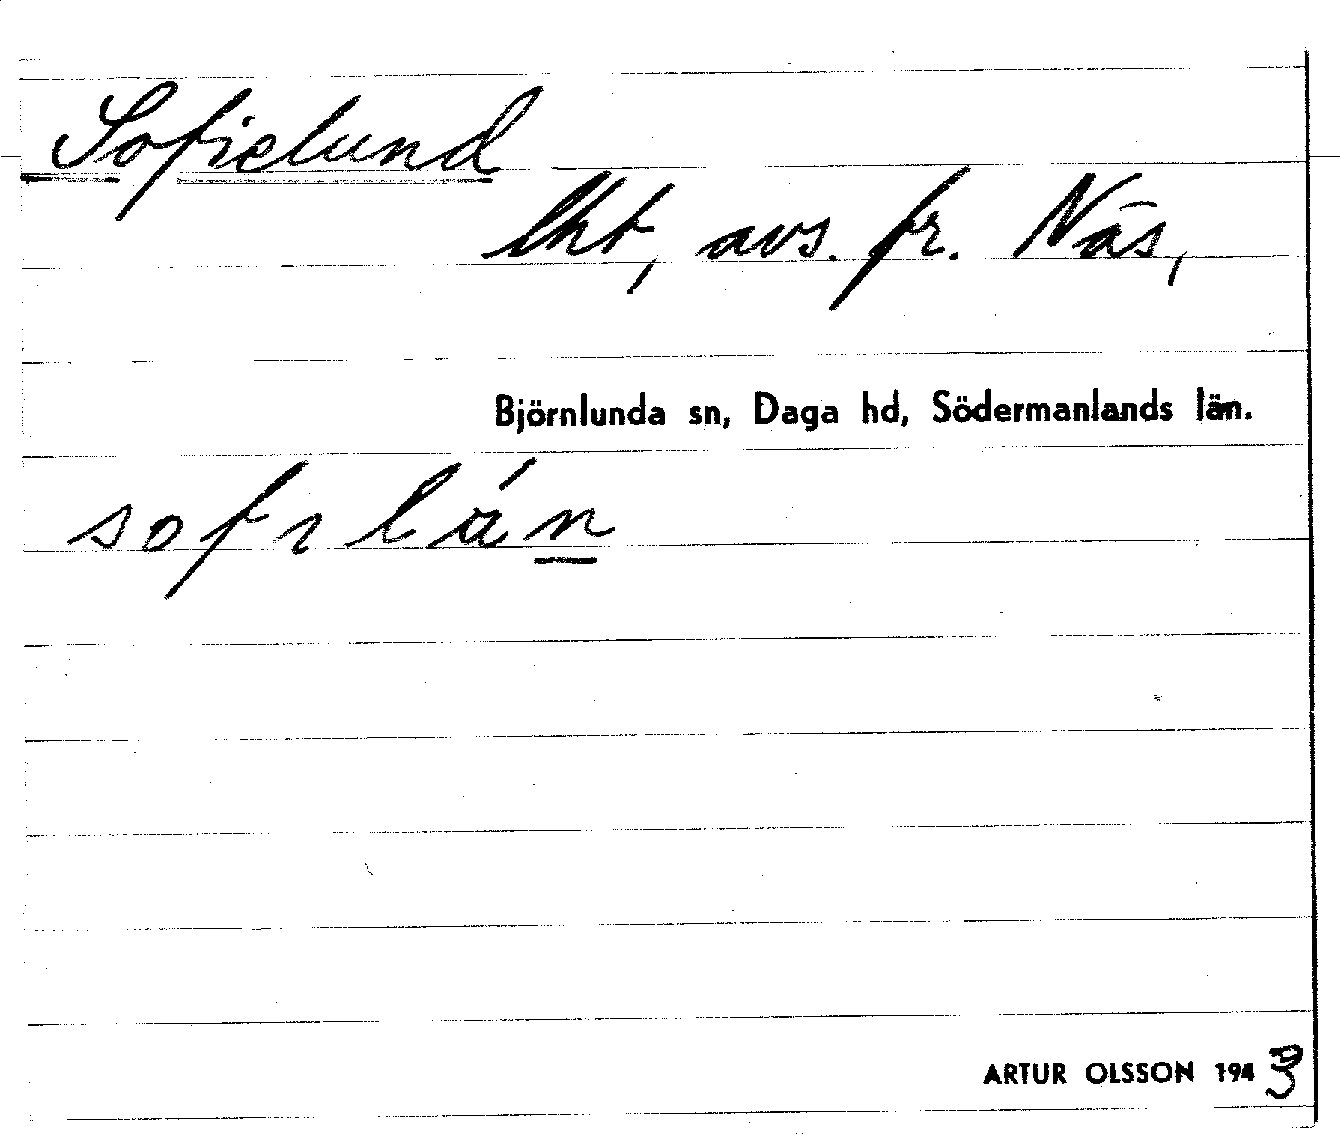 Sofielund
lht, avs. fr. Näs,
Björnlunda sn, Daga hd, Södermanlands län.
sofɩlán
ARTUR OLSSON 1943